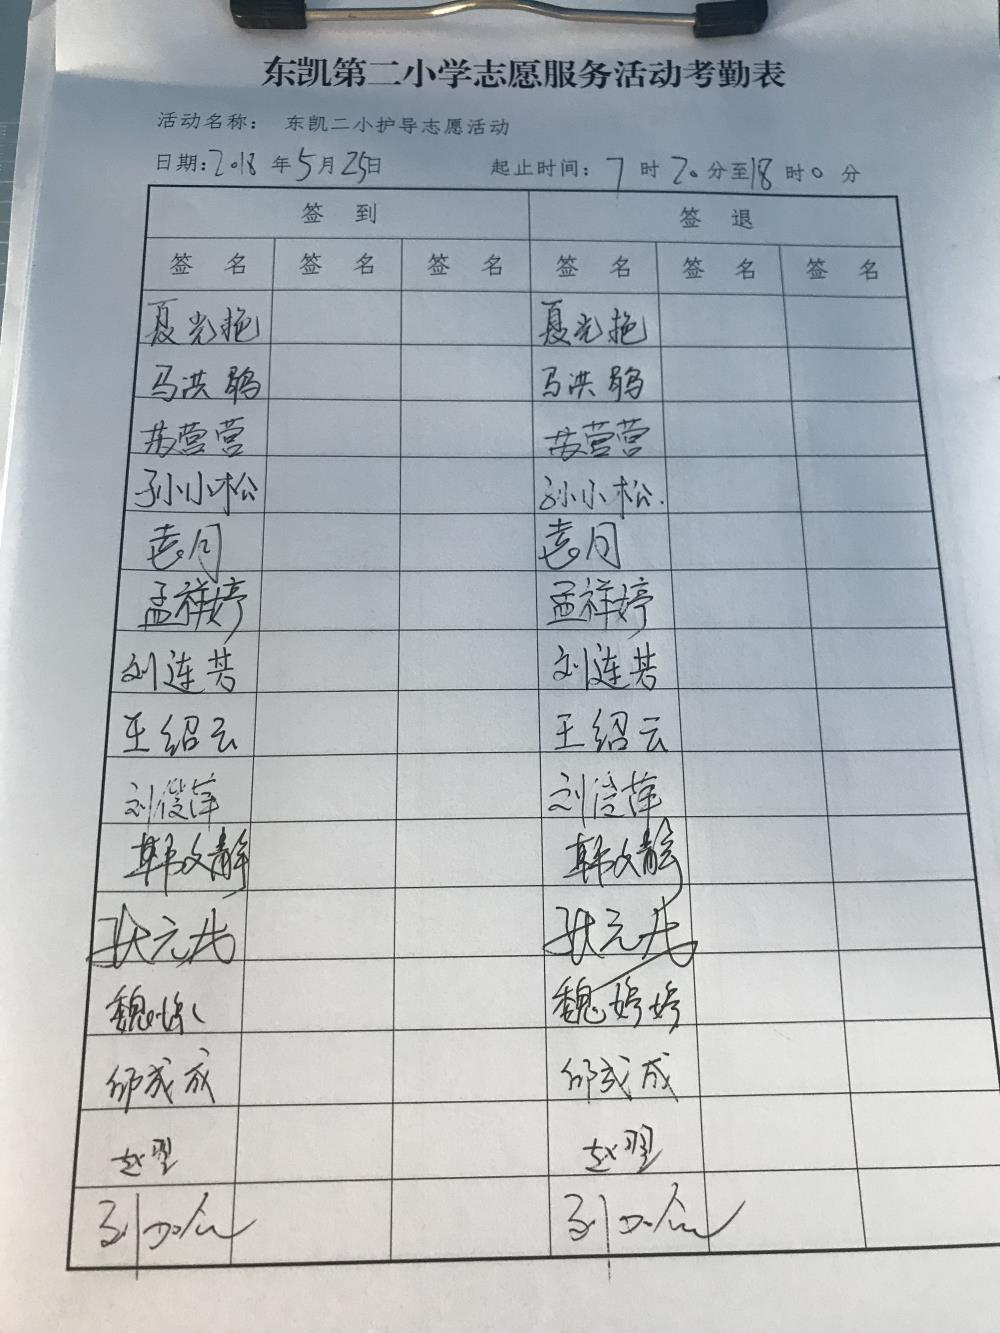 东凯第二小学志愿服务活动考勤表
活动名称： 东凯二小护导志愿活动
日期:2018 年5月25日 起止时间: 7 时 20分至18 时0 分
签 到 签 退
签 名 签 名 签 名 签 名 签 名 签 名
夏光艳 夏光艳
马洪鹃 马洪鹃
苏营营 苏营营
孙小松 孙小松.
袁月 袁月
孟祥婷 孟祥婷
刘连芳 刘连芳
王绍云 王绍云
刘俊萍 刘俊萍
韩文静 韩文静
元 元
魏婷 魏婷婷
邰成成 邰成成
赵翌 赵翌